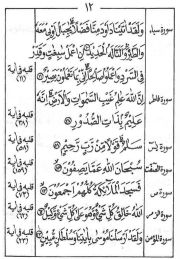 ١٢
سورة سبا وَلَقَدْ اٰتَيْنَا دَاوٗدَ مِنَّا فَضْلًا يٰجِبَالُ اَوِّبِيْ مَعَهٗ
وَالطَّيْرَ وَاَلَنَّا لَهُ الْحَدِيْدَ اَنِ اعْمَلْ سٰبِغٰتٍ وَّقَدِّرْ قلبه في آية
فِي السَّرْدِ وَاعْمَلُوْا صَالِحًا اِنِّيْ بِمَا تَعْمَلُوْنَ بَصِيْرٌ (١١)
سورة فاطر اِنَّ اللّٰهَ عٰلِمُ غَيْبِ السَّمٰوٰتِ وَالْاَرْضِ اِنَّهٗ قلبه في آية
عَلِيْمٌ بِذَاتِ الصُّدُوْرِ (٣٨)
سورة يٰس سَلٰمٌ قَوْلًا مِّنْ رَّبٍّ رَّحِيْمٍ قلبه في آية (٥٨)
سورة الصّفّت سُبْحَانَ اللّٰهِ عَمَّا يَصِفُوْنَ قلبه في آية (١٥٩)
سورة ص فَسَجَدَ الْمَلٰٓئِكَةُ كُلُّهُمْ اَجْمَعُوْنَ قلبه في آية (٧٣)
سورة الزمر اَللّٰهُ خَالِقُ كُلِّ شَيْءٍ وَّهُوَ عَلٰى كُلِّ شَيْءٍ وَّكِيْلٌ قلبه في آية
سورة المؤمن وَلَقَدْ اَرْسَلْنَا مُوْسٰى بِاٰيٰتِنَا وَسُلْطٰنٍ مُّبِيْنٍ قلبه في آية (٢٣)